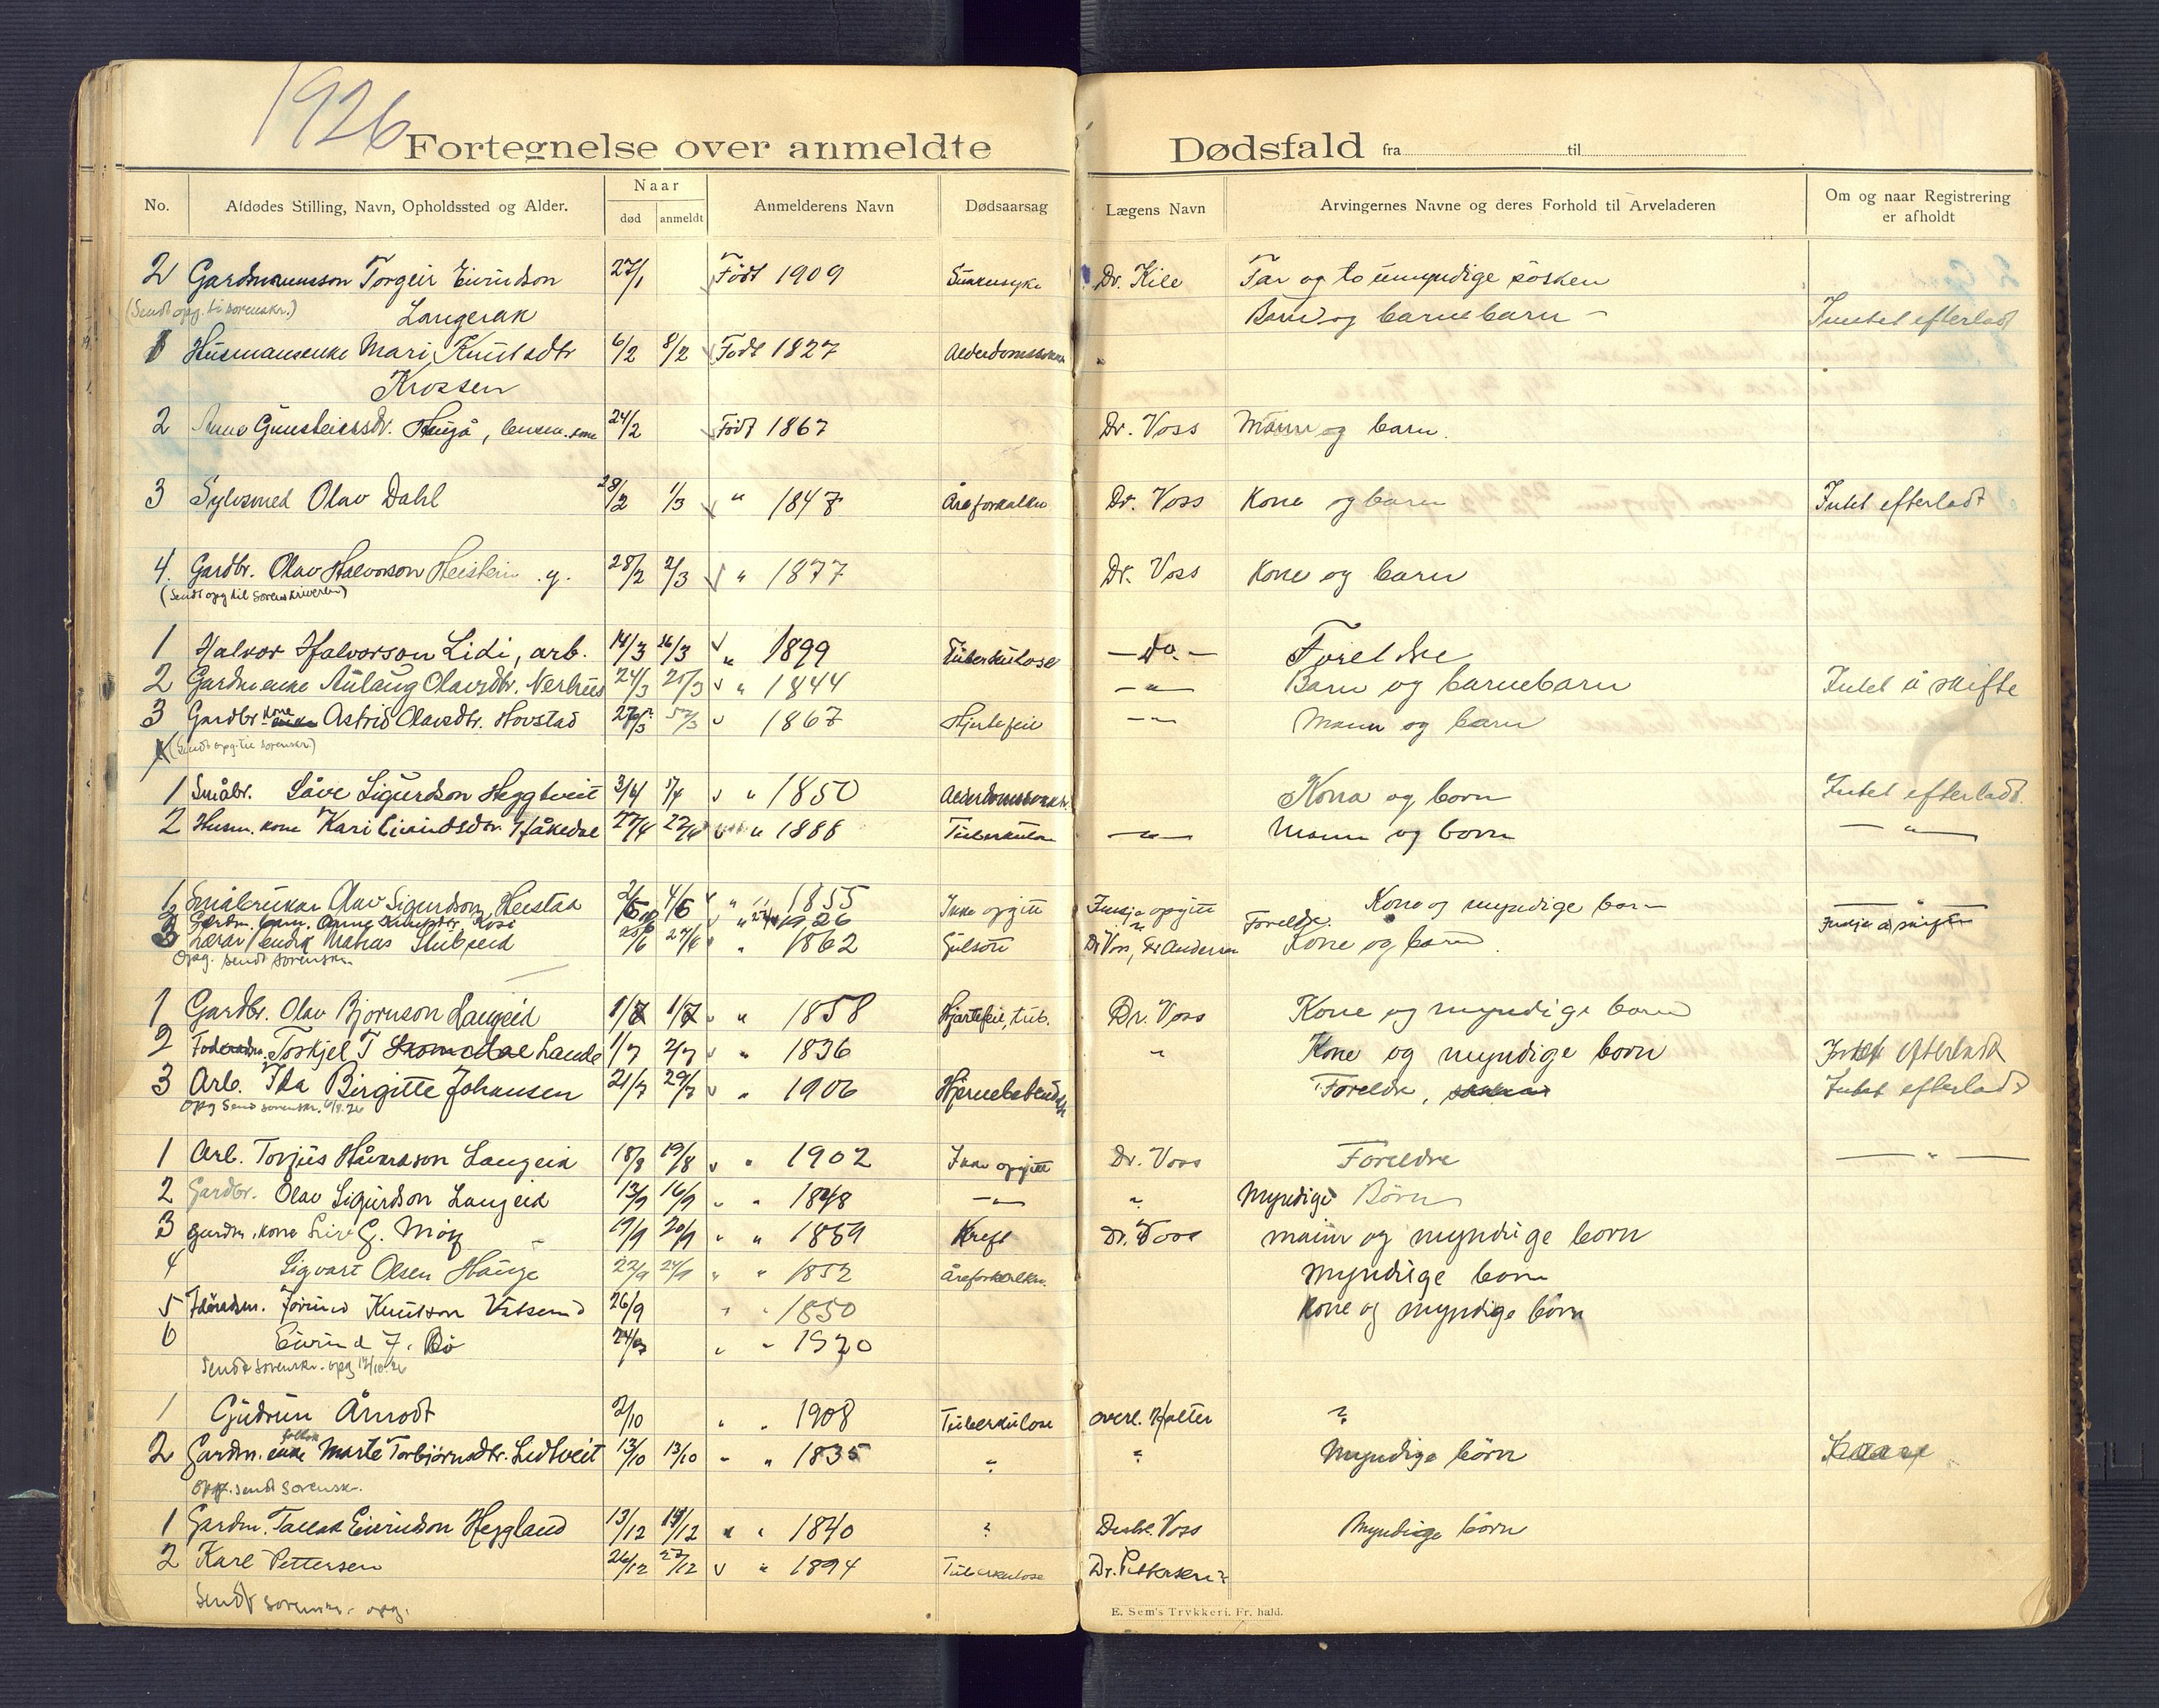 1926
Fortegnelse over anmeldte Dødsfald fra til
No. Afdødes Stilling, Navn, Opholdssted og Alder. Naar død anmeldt Anmelderens Navn Dødsaarsag Lægens Navn Arvingernes Navne og deres Forhold til Arveladeren Om og naar Registrering er afholdt
2 Gardmannsson Torgeir Eivindson 27/1 Født 1909 Sukersyke Dr. Kile Far og to umyndige søsken
(Sendt opg. til sorenskr.) Langerak Barn og barnebarn Intet efterladt
1 Husmansenke Mari Knutsdtr 6/2 8/2 Født 1827
Krossen
2 Gunsteinsdr. 24/2 Født 1867 Dr. Voss Mann og barn.
3 Sylvsmed Olav Dahl 28/2 1/3 " 1847 Åreforkalkn Dr. Voss Kone og barn Intet efterladt
4. Gardbr. Olav Halvorson Heistein .y. 28/2 2/3 " 1877 Dr. Voss Kone og barn
(Sendt opg til Sorenskriveren)
1 Halvor Halvorson Lidi, arb. 14/3 16/3 " 1899 Tuberkulose — Do. — Foreldre
2 Gardm enke Aulaug Olavsdtr. Nerhus 24/3 25/3 " 1844 — " — Barn og barnebarn Intet å skifte
3 Gardbr. kone Astrid Olavsdtr. Hovstad " 1867 Hjertefeil — " — Mann og barn
(Sendt opg. til sorenskr.)
1 Småbr. Såve Sigurdson Heggtveit 3/4 " 1850 Kona og born Intet efterladt.
2 Husm. kone Kari Eivindsdtr. Håkedal 27/4 " 1888 Tuberkulose — " — Mann og born — " —
1 Småbruker Olav Sigurdson Heistad 2/5 4/5 " 1855 Ikke opgitt Inkje opgitt Kone og myndige barn
2 Gardm. barn. Anne Knutsdtr. " 1926 " Foreldre. Inkje å skifte
3 Mathias Stubseid " 1862 Gulsott Dr Voss, Dr Andersen Kone og barn.
Opg. sendt sorenskr.
1 Gardbr. Olav Bjornson Langeid 1/7 1/7 " 1858 Hjartefeil, tub. Dr. Voss Kone og myndige barn
2 Foderadm. Torkjel T Lande 1/7 2/7 " 1836 " Kone og myndige born Intet efterladt
3 Arb. Ida Birgitte Johansen 21/7 29/7 " 1906 Foreldre, Intet efterladt
Opg Send sorenskr.
1 Arb. Torjus Håvardson Langeid 18/8 19/8 " 1902 Ikke opgitt Dr. Voss Foreldre — " —
2 Gardbr. Olav Sigurdson Langeid 13/9 16/9 " 1848 — " — " Myndige Børn
3 Gardm. kona Siri G. Moy 19/9 20/9 " 1859 Kreft Dr. Voss mann og myndige born
4 Sigvart Olsen Hauge 22/9 24/9 " 1852 Åreforkalkn. myndige born
5 Jörund Knutson Viksund 26/9 " 1850 Kone og myndige børn
6 Eivind J. Bö " 1920
Sendt sorenskr. opg
1 Gudrun Åmodt 2/10 " 1908 Tuberkulose overl. Holter ?
2 Gardm. enke Marte Torbjørnsdtr. Lidtveit 13/10 13/10 " 1835 ? " Myndige börn
Opg. sendt sorenskr.
1 Gardm. Tallak Eivindson Heggland 13/12 14/12 " 1840 ? Distr. Voss Myndige börn
2 Karl Pettersen 26/12 27/12 " 1894 Tuberkulose Dr. Pettersen?
Sendt sorenskr. opg.
E. Sem's Trykkeri. Fr. hald.